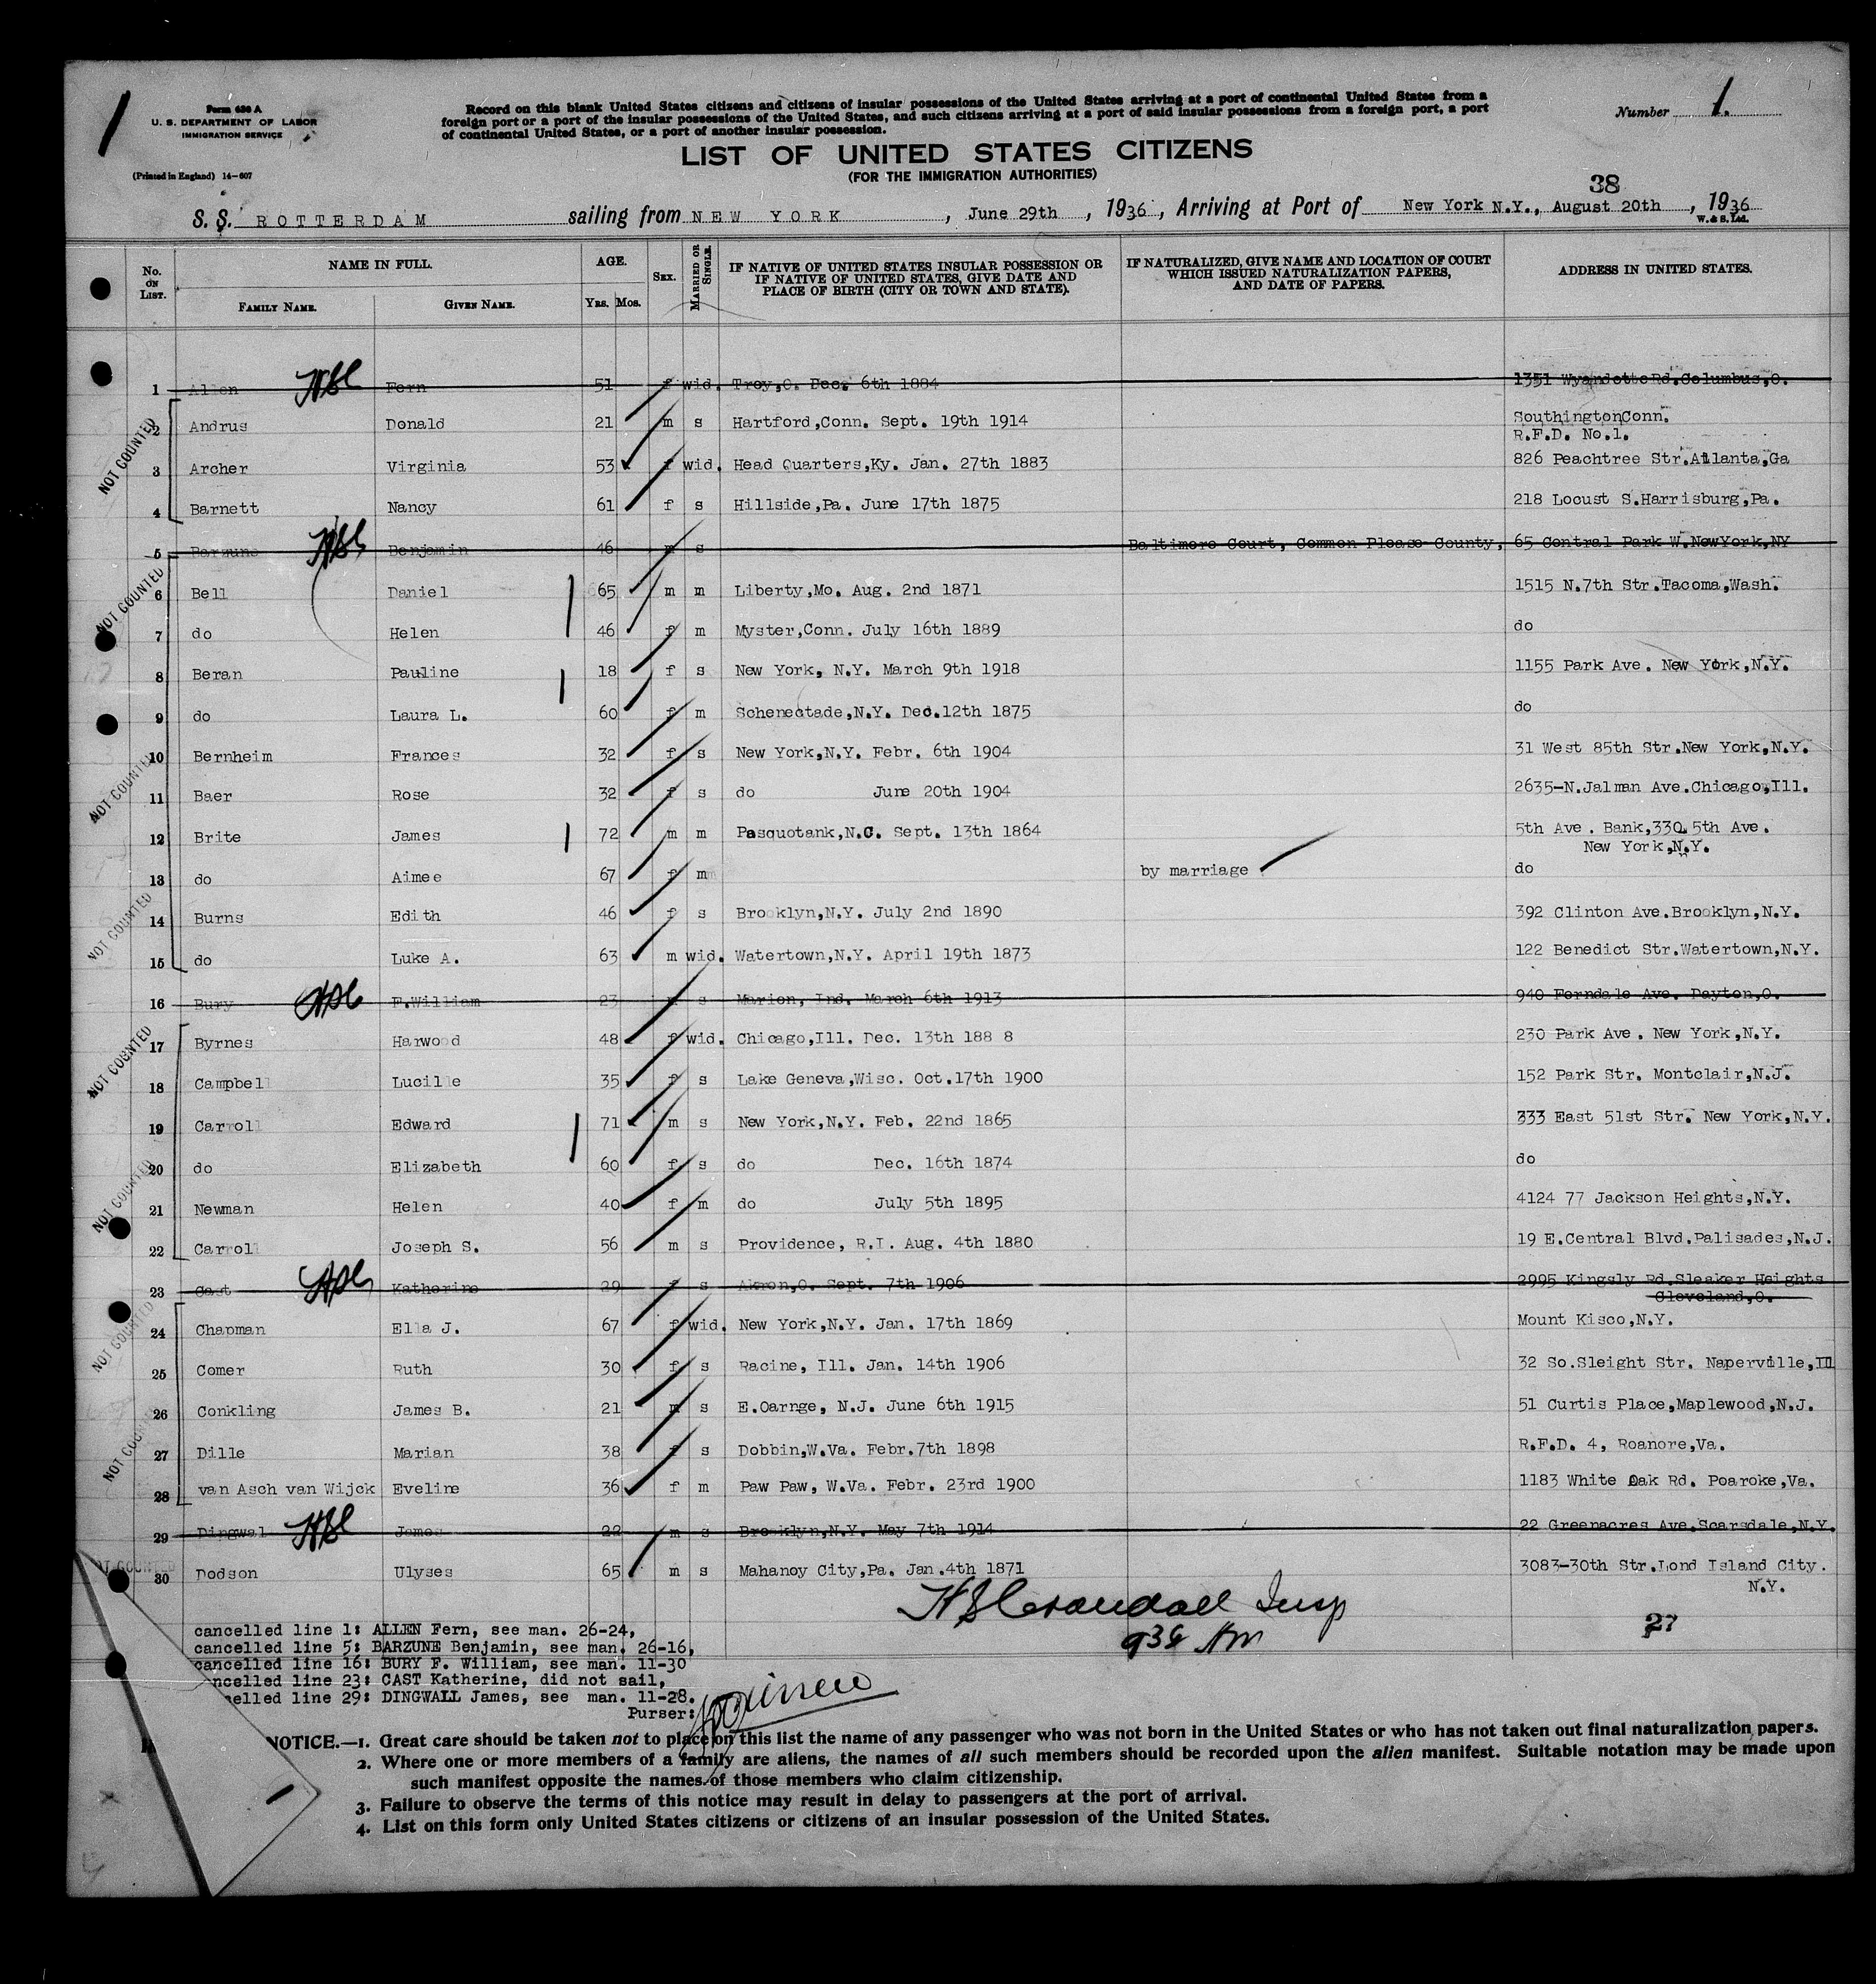 Form 630 A
U. S. DEPARTMENT OF LABOR
IMMIGRATION SERVICE
(Printed in England) 14-607
Record on this blank United States citizens and citizens of insular possessions of the United States arriving at a port of continental United States from a
foreign port or a port of the insular possessions of the United States, and such citizens arriving at a port of said insular possessions from a foreign port, a port
of continental United States, or a port of another insular possession.
Number 1.
LIST OF UNITED STATES CITIZENS
(FOR THE IMMIGRATION AUTHORITIES)
38
S. S. ROTTERDAM sailing from NEW YORK, June 29th, 1936, Arriving at Port of New York N.Y., August 20th, 1936
W. & S. Ltd.
No. ON LIST. NAME IN FULL. FAMILY NAME. GIVEN NAME. AGE. Yrs. Mos. SEX. MARRIED OR SINGLE. IF NATIVE OF UNITED STATES INSULAR POSSESSION OR IF NATIVE OF UNITED STATES, GIVE DATE AND PLACE OF BIRTH (CITY OR TOWN AND STATE). IF NATURALIZED, GIVE NAME AND LOCATION OF COURT WHICH ISSUED NATURALIZATION PAPERS, AND DATE OF PAPERS. ADDRESS IN UNITED STATES.
1 Allen Fern 51 f wid. Troy,O. Dec. 6th 1884 1351 WyandotteRd.Columbus,O.
2 Andrus Donald 21 m s Hartford,Conn. Sept. 19th 1914 SouthingtonConn.
R.F.D. No.1.
3 Archer Virginia 53 f wid. Head Quarters,Ky. Jan. 27th 1883 826 Peachtree Str.Atlanta,Ga
4 Barnett Nancy 61 f s Hillside,Pa. June 17th 1875 218 Locust S.Harrisburg,Pa.
5 Barzune Benjamin 46 m s Baltimore Court, Common Please County, 65 Central Park W.NewYork,NY
6 Bell Daniel 65 m m Liberty,Mo. Aug. 2nd 1871 1515 N.7th Str.Tacoma,Wash.
7 do Helen 46 f m Myster,Conn. July 16th 1889 do
8 Beran Pauline 18 f s New York, N.Y. March 9th 1918 1155 Park Ave. New York,N.Y.
9 do Laura L. 60 f m Schenectade,N.Y. Dec.12th 1875 do
10 Bernheim Frances 32 f s New York,N.Y. Febr. 6th 1904 31 West 85th Str.New York,N.Y.
11 Baer Rose 32 f s do June 20th 1904 2635-N.Jalman Ave.Chicago,Ill.
12 Brite James 72 m m Pasquotank,N.C. Sept. 13th 1864 5th Ave. Bank,330.5th Ave.
New York,N.Y.
13 do Aimee 67 f m by marriage do
14 Burns Edith 46 f s Brooklyn,N.Y. July 2nd 1890 392 Clinton Ave.Brooklyn,N.Y.
15 do Luke A. 63 m wid. Watertown,N.Y. April 19th 1873 122 Benedict Str.Watertown,N.Y.
16 Bury F.William 23 m s Marion, Ind. March 6th 1913 940 Ferndale Ave. Dayton,O.
17 Byrnes Harwood 48 f wid. Chicago,Ill. Dec. 13th 188 8 230 Park Ave. New York,N.Y.
18 Campbell Lucille 35 f s Lake Geneva,Wisc. Oct.17th 1900 152 Park Str. Montclair,N.J.
19 Carroll Edward 71 m s New York,N.Y. Feb. 22nd 1865 333 East 51st Str. New York,N.Y.
20 do Elizabeth 60 f s do Dec. 16th 1874 do
21 Newman Helen 40 f m do July 5th 1895 4124 77 Jackson Heights,N.Y.
22 Carroll Joseph S. 56 m s Providence, R.I. Aug. 4th 1880 19 E.Central Blvd.Palisades,N.J.
23 Cast Katherine 29 f s Akron,O. Sept. 7th 1906 2995 Kingsly Rd.Sleaker Heights
Cleveland,O.
24 Chapman Ella J. 67 f wid. New York,N.Y. Jan. 17th 1869 Mount Kisco,N.Y.
25 Comer Ruth 30 f s Racine, Ill. Jan. 14th 1906 32 So.Sleight Str. Naperville,Ill
26 Conkling James B. 21 m s E.Oarnge, N.J. June 6th 1915 51 Curtis Place,Maplewood,N.J.
27 Dille Marian 38 f s Dobbin,W.Va. Febr.7th 1898 R.F.D. 4, Roanore,Va.
28 van Asch van Wijck Eveline 36 f m Paw Paw, W.Va. Febr. 23rd 1900 1183 White Oak Rd. Poaroke,Va.
29 Dingwal James 22 m s Brooklyn,N.Y. May 7th 1914 22 Greenacres Ave.Scarsdale,N.Y.
30 Dodson Ulyses 65 m s Mahanoy City,Pa. Jan.4th 1871 3083-30th Str.Lond Island City.
N.Y.
NOT COUNTED
NOT COUNTED
NOT COUNTED
NOT COUNTED
NOT COUNTED
NOT COUNTED
NOT COUNTED
NOT COUNTED
HS Crandall Insp
27
cancelled line 1: ALLEN Fern, see man. 26-24,
cancelled line 5: BARZUNE Benjamin, see man. 26-16,
cancelled line 16: BURY F. William, see man. 11-30
ncelled line 23: CAST Katherine, did not sail,
elled line 29: DINGWALL James, see man. 11-28.
Purser:
NOTICE.—1. Great care should be taken not to place on this list the name of any passenger who was not born in the United States or who has not taken out final naturalization papers.
2. Where one or more members of a family are aliens, the names of all such members should be recorded upon the alien manifest. Suitable notation may be made upon
such manifest opposite the names of those members who claim citizenship.
3. Failure to observe the terms of this notice may result in delay to passengers at the port of arrival.
4. List on this form only United States citizens or citizens of an insular possession of the United States.